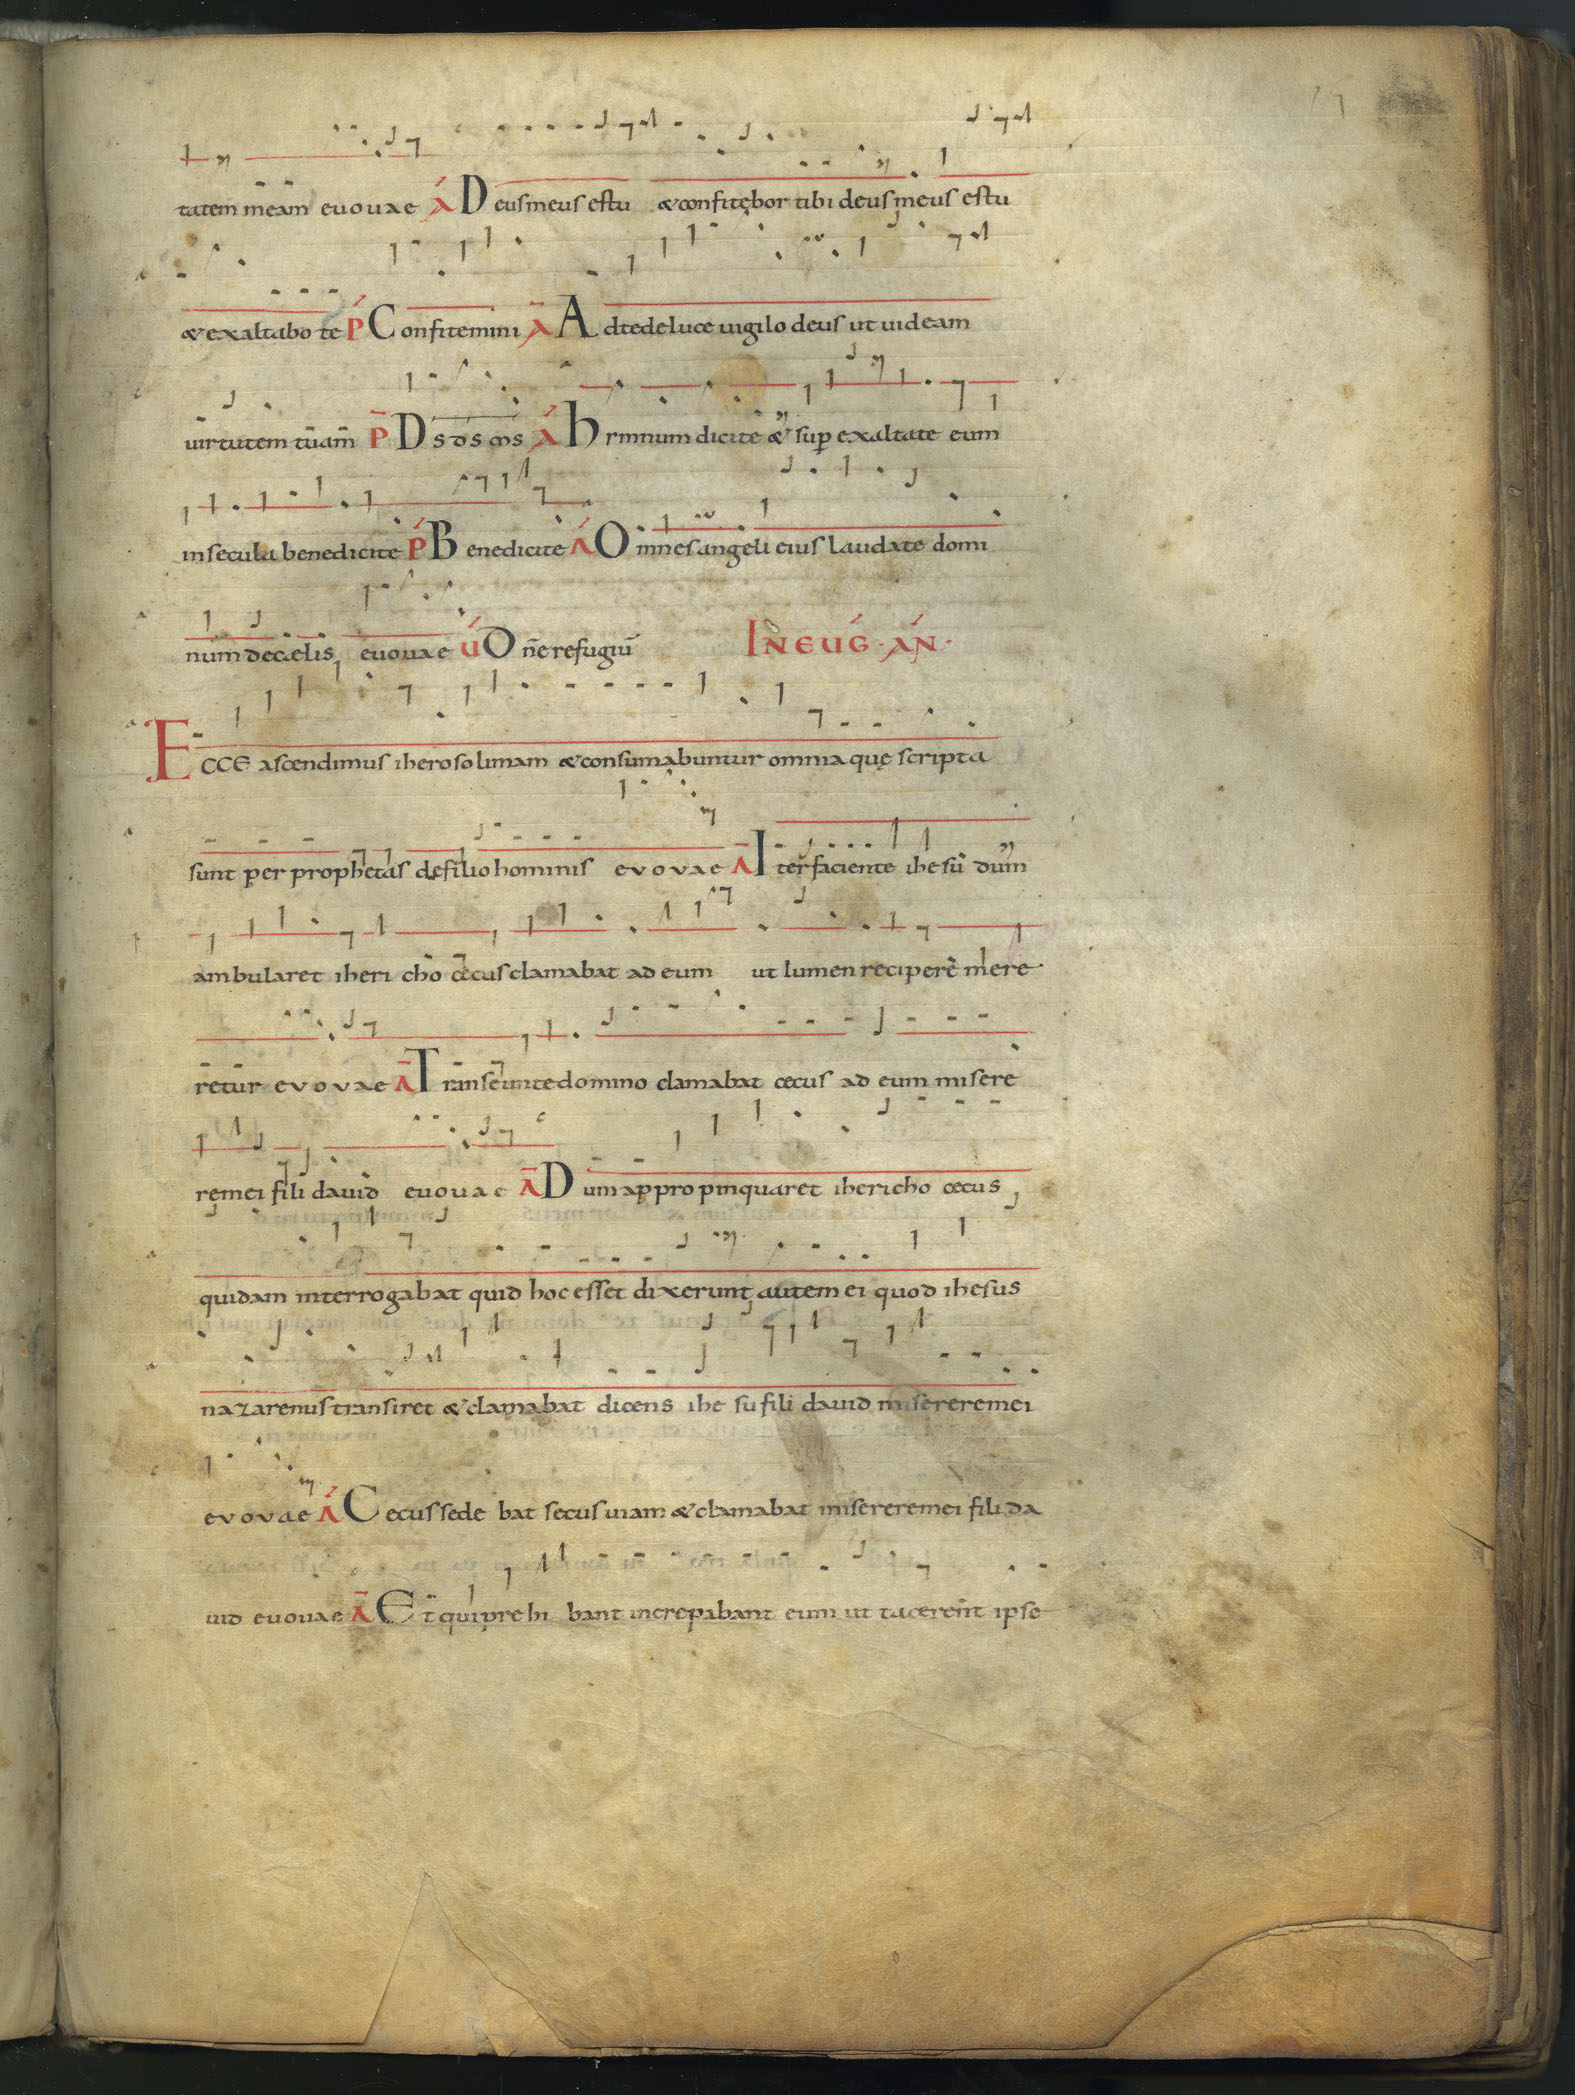 tatem meam evovae A Deus meus es tu & confitębor tibi deus meus es tu
& exaltabo te P Confitemini A Ad te de luce uigilo deus ut uideam
uirtutem tuam P Ds ds ms A hymnum dicite & sup exaltate eum
in secula benedicite P Benedicite A Omnes angeli eius laudate domi
num de cælis euouae V Dñe refugiū IN EUG · AN ·
ECCE ascendimus iherosolimam & consumabuntur omnia quę scripta
sunt per prophetas de filio hominis evovae A Iter faciente ihesu dum
ambularet iheri cho cecus clamabat ad eum ut lumen recipere mere
retur evovae A Transeunte domino clamabat cecus ad eum misere
re mei fili dauid euouae A Dum appropinquaret ihericho cecus
quidam interrogabat quid hoc esset dixerunt autem ei quod ihesus
nazarenus transiret & clamabat dicens ihe su fili dauid miserere mei
evovae A Cecus sede bat secus uiam & clamabat miserere mei fili da
uid evouae A Et qui prehi bant increpabant eum ut taceret ipse